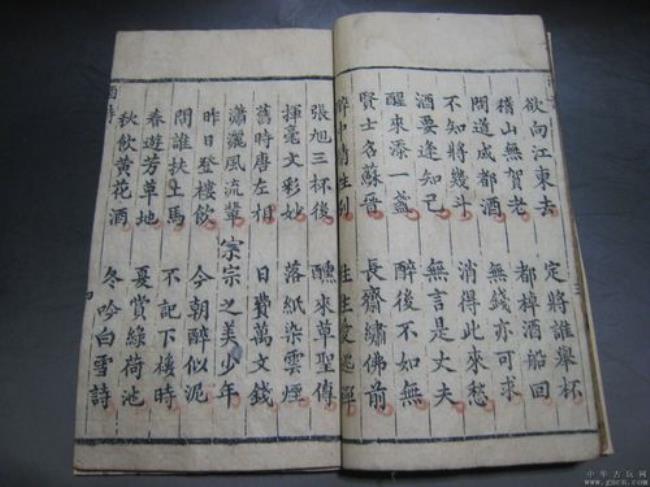 欲向江東去 定將誰舉杯
稽山無賀老 都棹酒船回
問道成都酒 無錢亦可求
不知將幾斗 消得此來愁
酒要逢知己 無言是丈夫
醒來添一盞 醉後不如無
賢士名蘇晉 長齋繡佛前
醉中
張旭三杯後 醺來草聖傳
揮毫文彩妙 落紙染雲煙
舊時唐左相 日費萬文錢
瀟灑風流輩 宗宗之美少年
昨日登樓飲 今朝醉似泥
問誰扶上馬 不記下樓時
春遊芳草地 夏賞綠荷池
秋飲黃花酒 冬吟白雪詩
中华古玩网
www.gucn.com